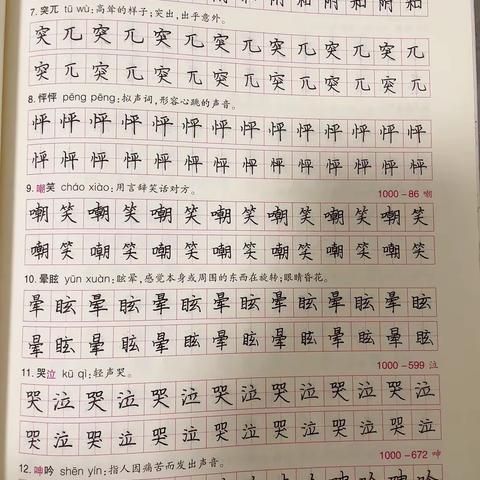 附 和 附 和
7. 突兀 tū wù：高耸的样子；突出，出乎意外。
突 兀 突 兀 突 兀 突 兀 突 兀 突 兀 突 兀
突 兀 突 兀 突 兀 突 兀 突 兀 突 兀 突 兀
8. 怦怦 pēng pēng：拟声词，形容心跳的声音。
怦 怦 怦 怦 怦 怦 怦 怦 怦 怦 怦 怦 怦 怦
怦 怦 怦 怦 怦 怦 怦 怦 怦 怦 怦 怦 怦 怦
9. 嘲笑 cháo xiào：用言辞笑话对方。 1000－86 嘲
嘲 笑 嘲 笑 嘲 笑 嘲 笑 嘲 笑 嘲 笑 嘲 笑
嘲 笑 嘲 笑 嘲 笑 嘲 笑 嘲 笑 嘲 笑 嘲 笑
10. 晕眩 yūn xuàn：眩晕，感觉本身或周围的东西在旋转；眼睛昏花。
晕 眩 晕 眩 晕 眩 晕 眩 晕 眩 晕 眩 晕 眩
晕 眩 晕 眩 晕 眩 晕 眩 晕 眩 晕 眩 晕 眩
11. 哭泣 kū qì：轻声哭。 1000－599 泣
哭 泣 哭 泣 哭 泣 哭 泣 哭 泣 哭 泣 哭 泣
哭 泣 哭 泣 哭 泣 哭 泣 哭 泣 哭 泣 哭 泣
1000－672 呻
12. 呻吟 shēn yín：指人因痛苦而发出声音。